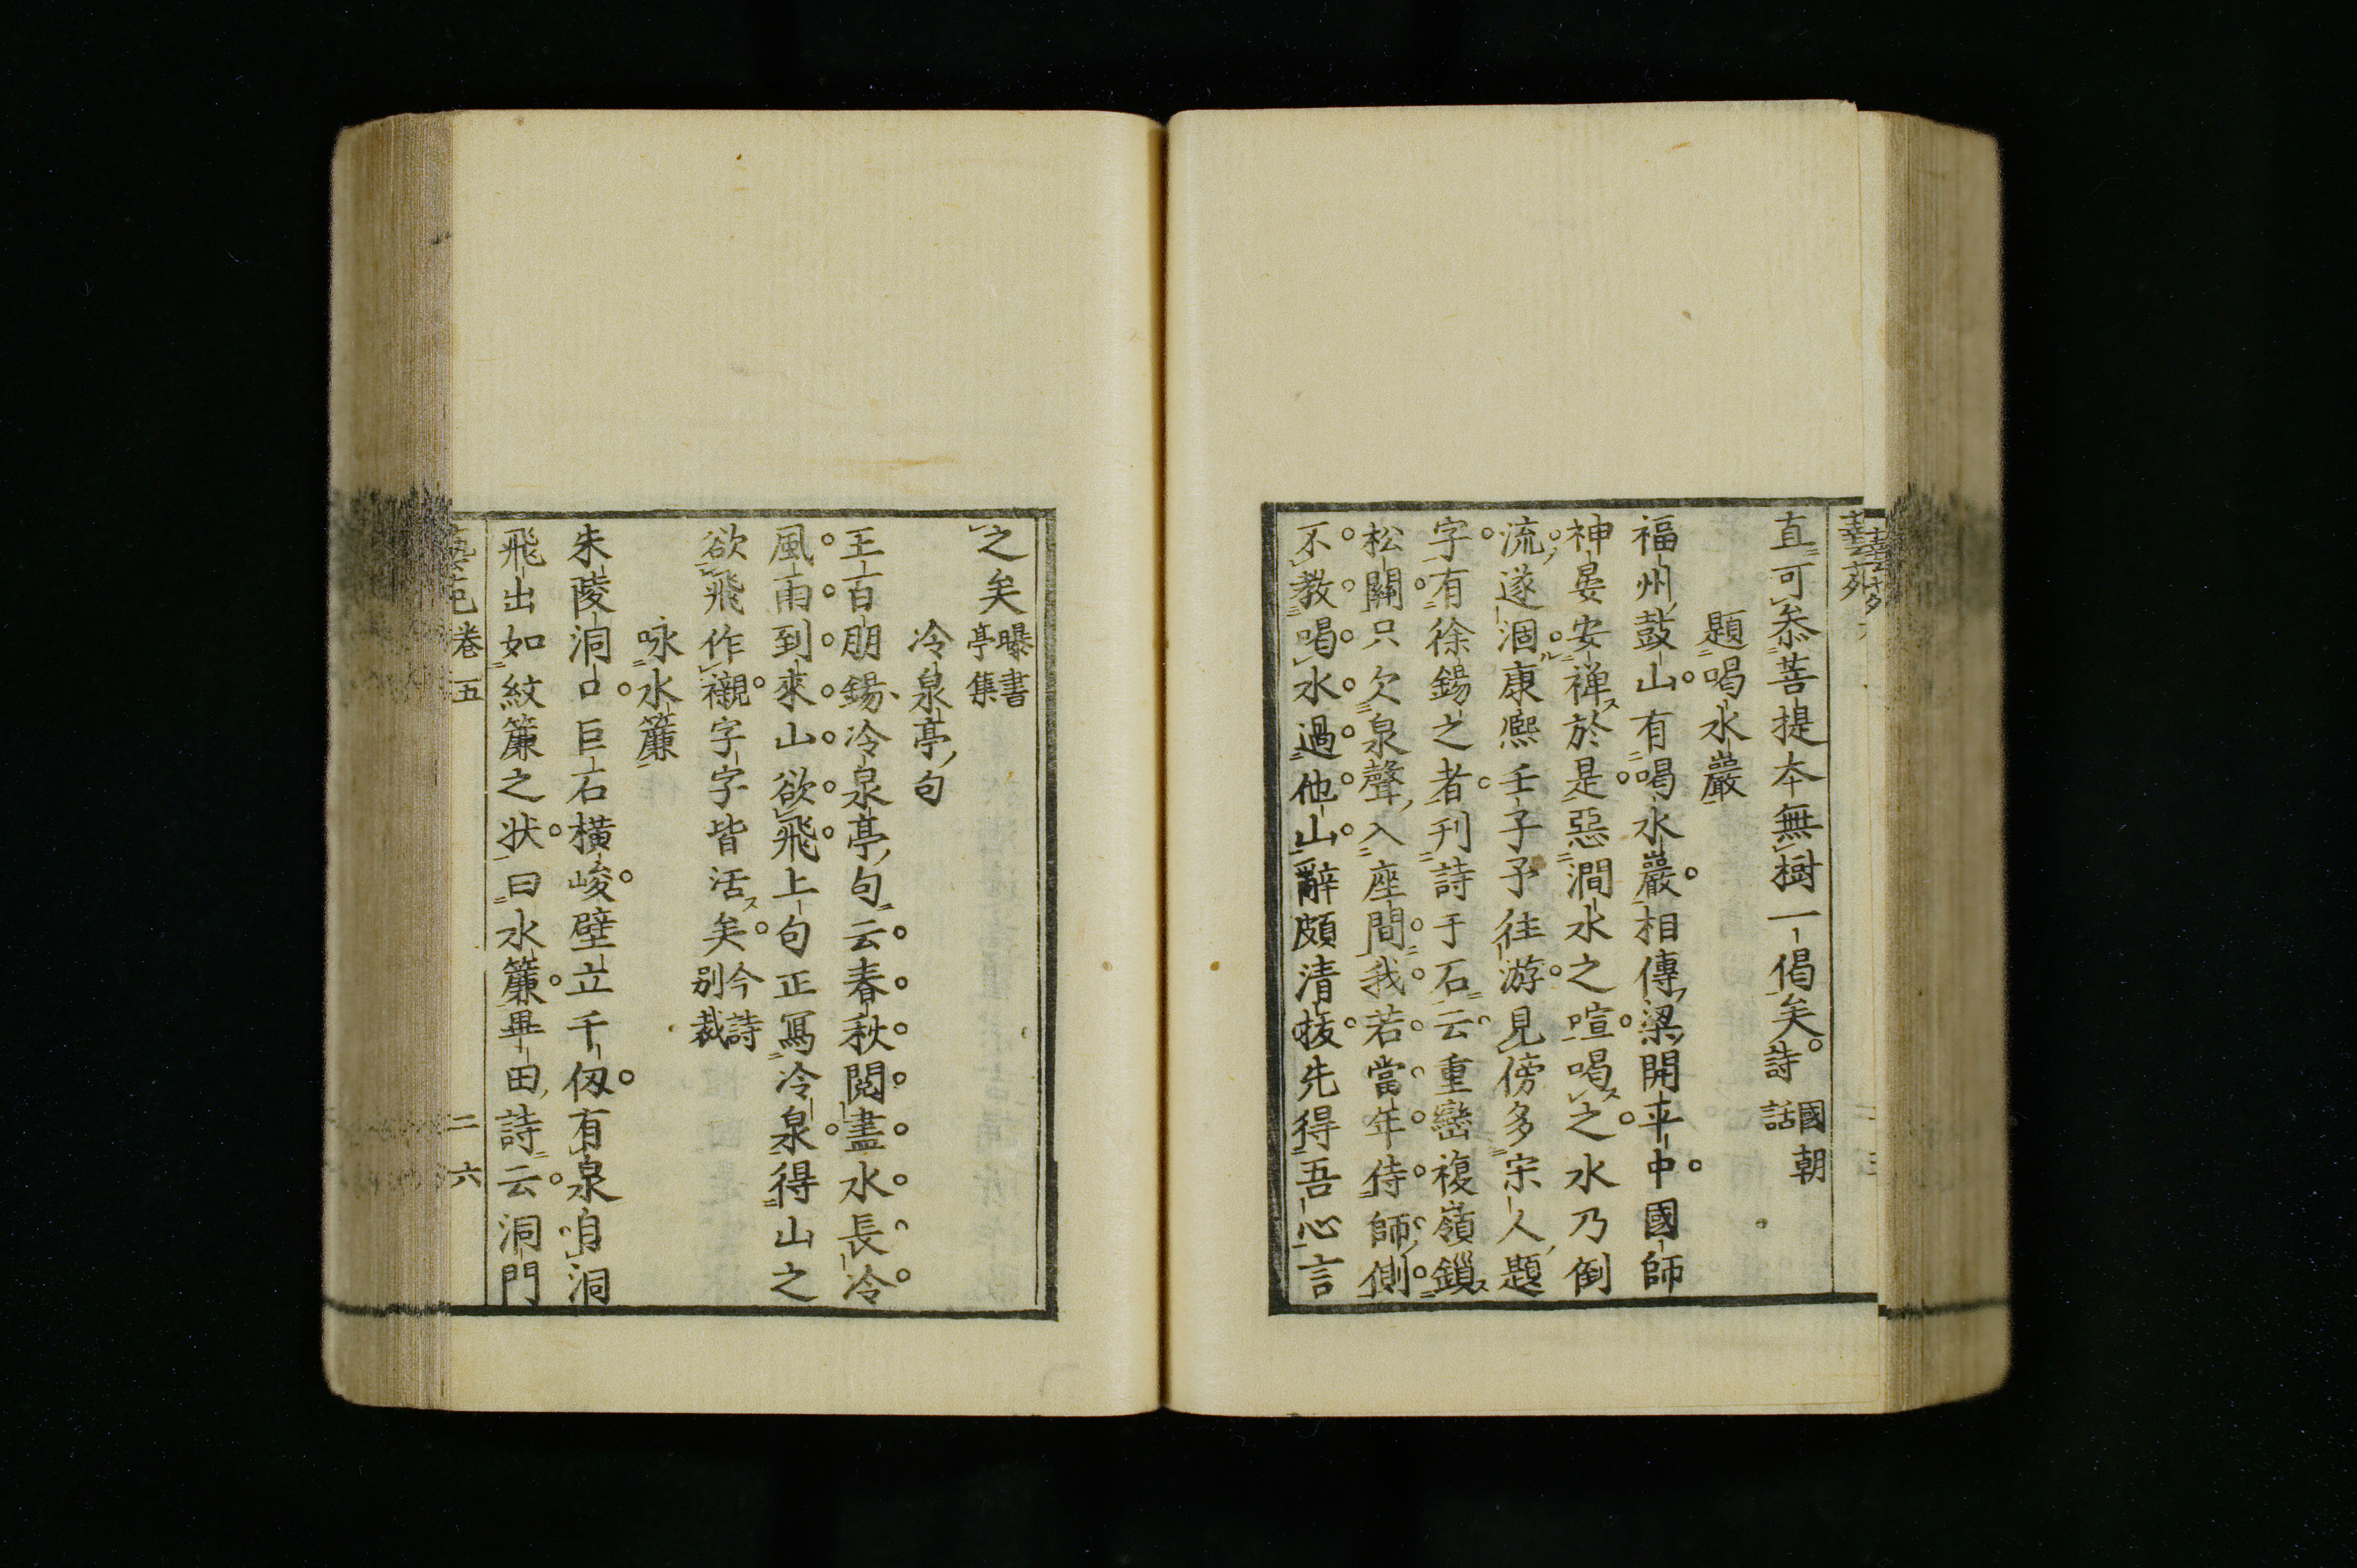 直可叅菩提本無樹一偈矣詩國朝
話
題喝水巖
福州鼓山有喝水巖相傳梁開平中國師
神晏安禅於是惡澗水之喧喝之水乃倒
流遂涸康熈壬子予往游見傍多宋人題
字有徐鍚之者刋詩于石云重巒複嶺鎻
松關只欠泉聲入座間我若當年侍師側
不教喝水過他山辭頗清拔先得吾心言
之矣曝書
亭集
冷泉亭句
王百朋鍚冷泉亭句云春秋閲盡水長冷
風雨到來山欲飛上句正冩冷泉得山之
欲飛作襯字字皆活矣今詩
别裁
咏水簾
朱陵洞口巨石横峻壁立千仭有泉自洞
飛出如紋簾之状曰水簾畢田詩云洞門
藝苑卷五 二六